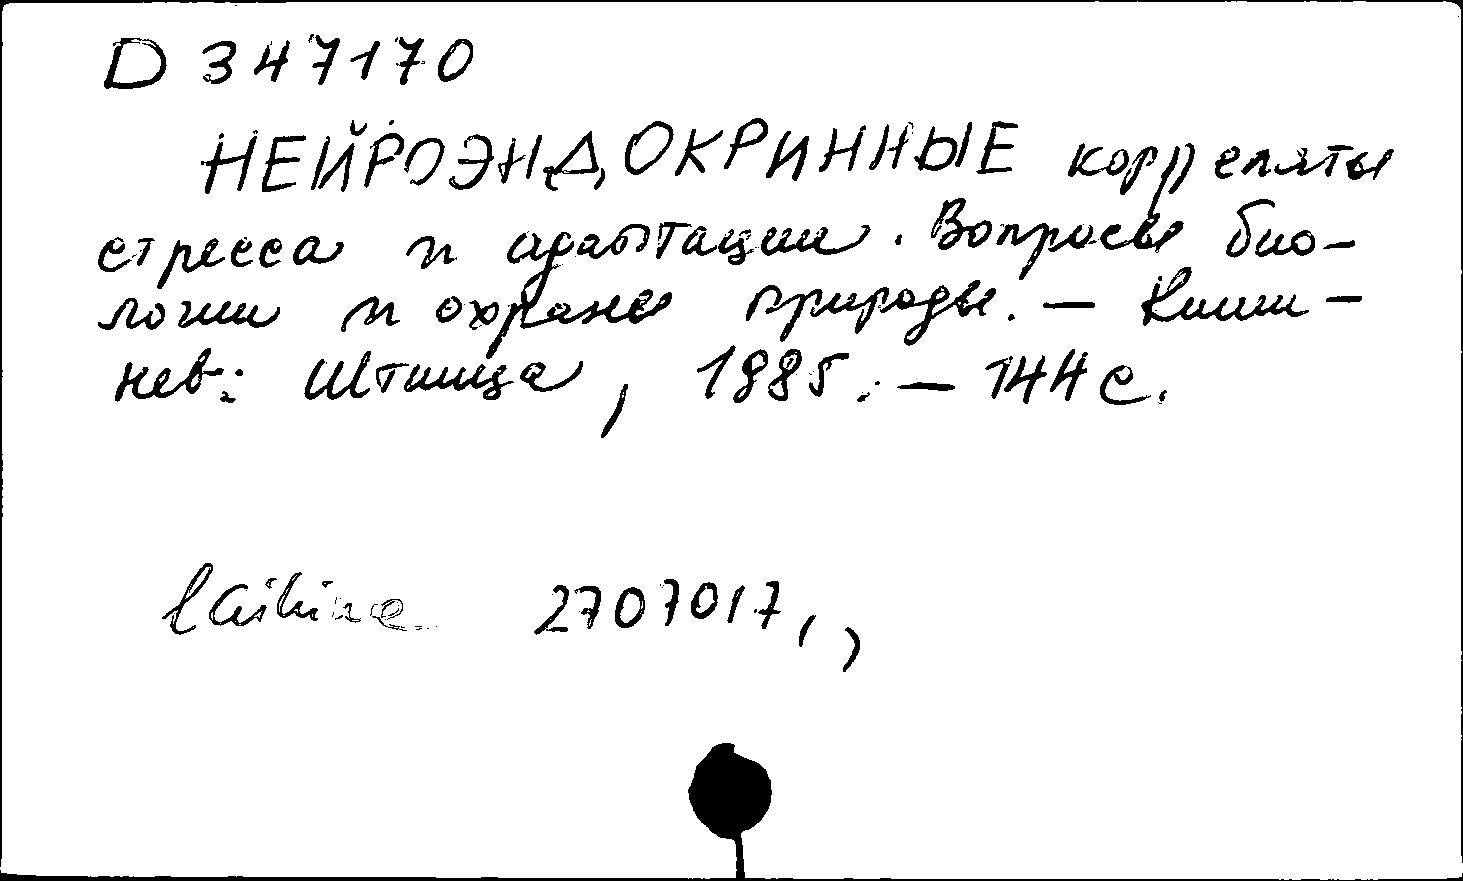 D 347170
НЕЙРОЭНДОКРИННЫЕ корреляты
стресса и адаптации. Вопросы био-
логии и охраны природы. — Киши-
нев: Штиица, 1985. — 144 с.
2707017,,